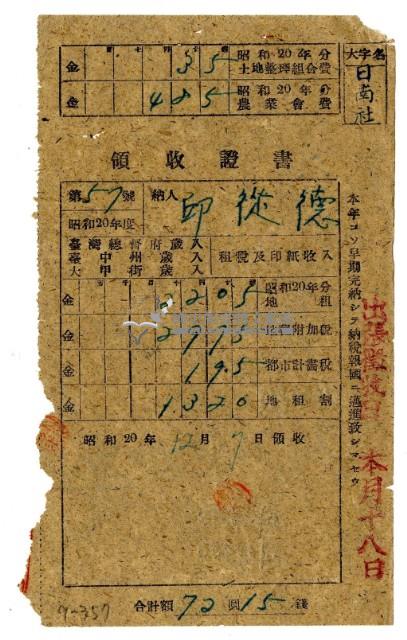 大字名
日南社
昭和20年分
土地整理組合費
金 35
昭和20年分
農業會費
金 485
領收證書
第57號
納人 邱從德
昭和20年度
臺灣總督府歲入
臺中州歲入
大甲街歲入
租稅及印紙收入
昭和20年分
地租
金 205
地租附加稅
金 2995
都市計畫稅
金 195
地租割
金 1320
昭和20年12月7日領收
合計額 72圓15錢
本年コソ早期完納シテ納稅報國ニ邁進致シマセウ
本月十八日
9-357